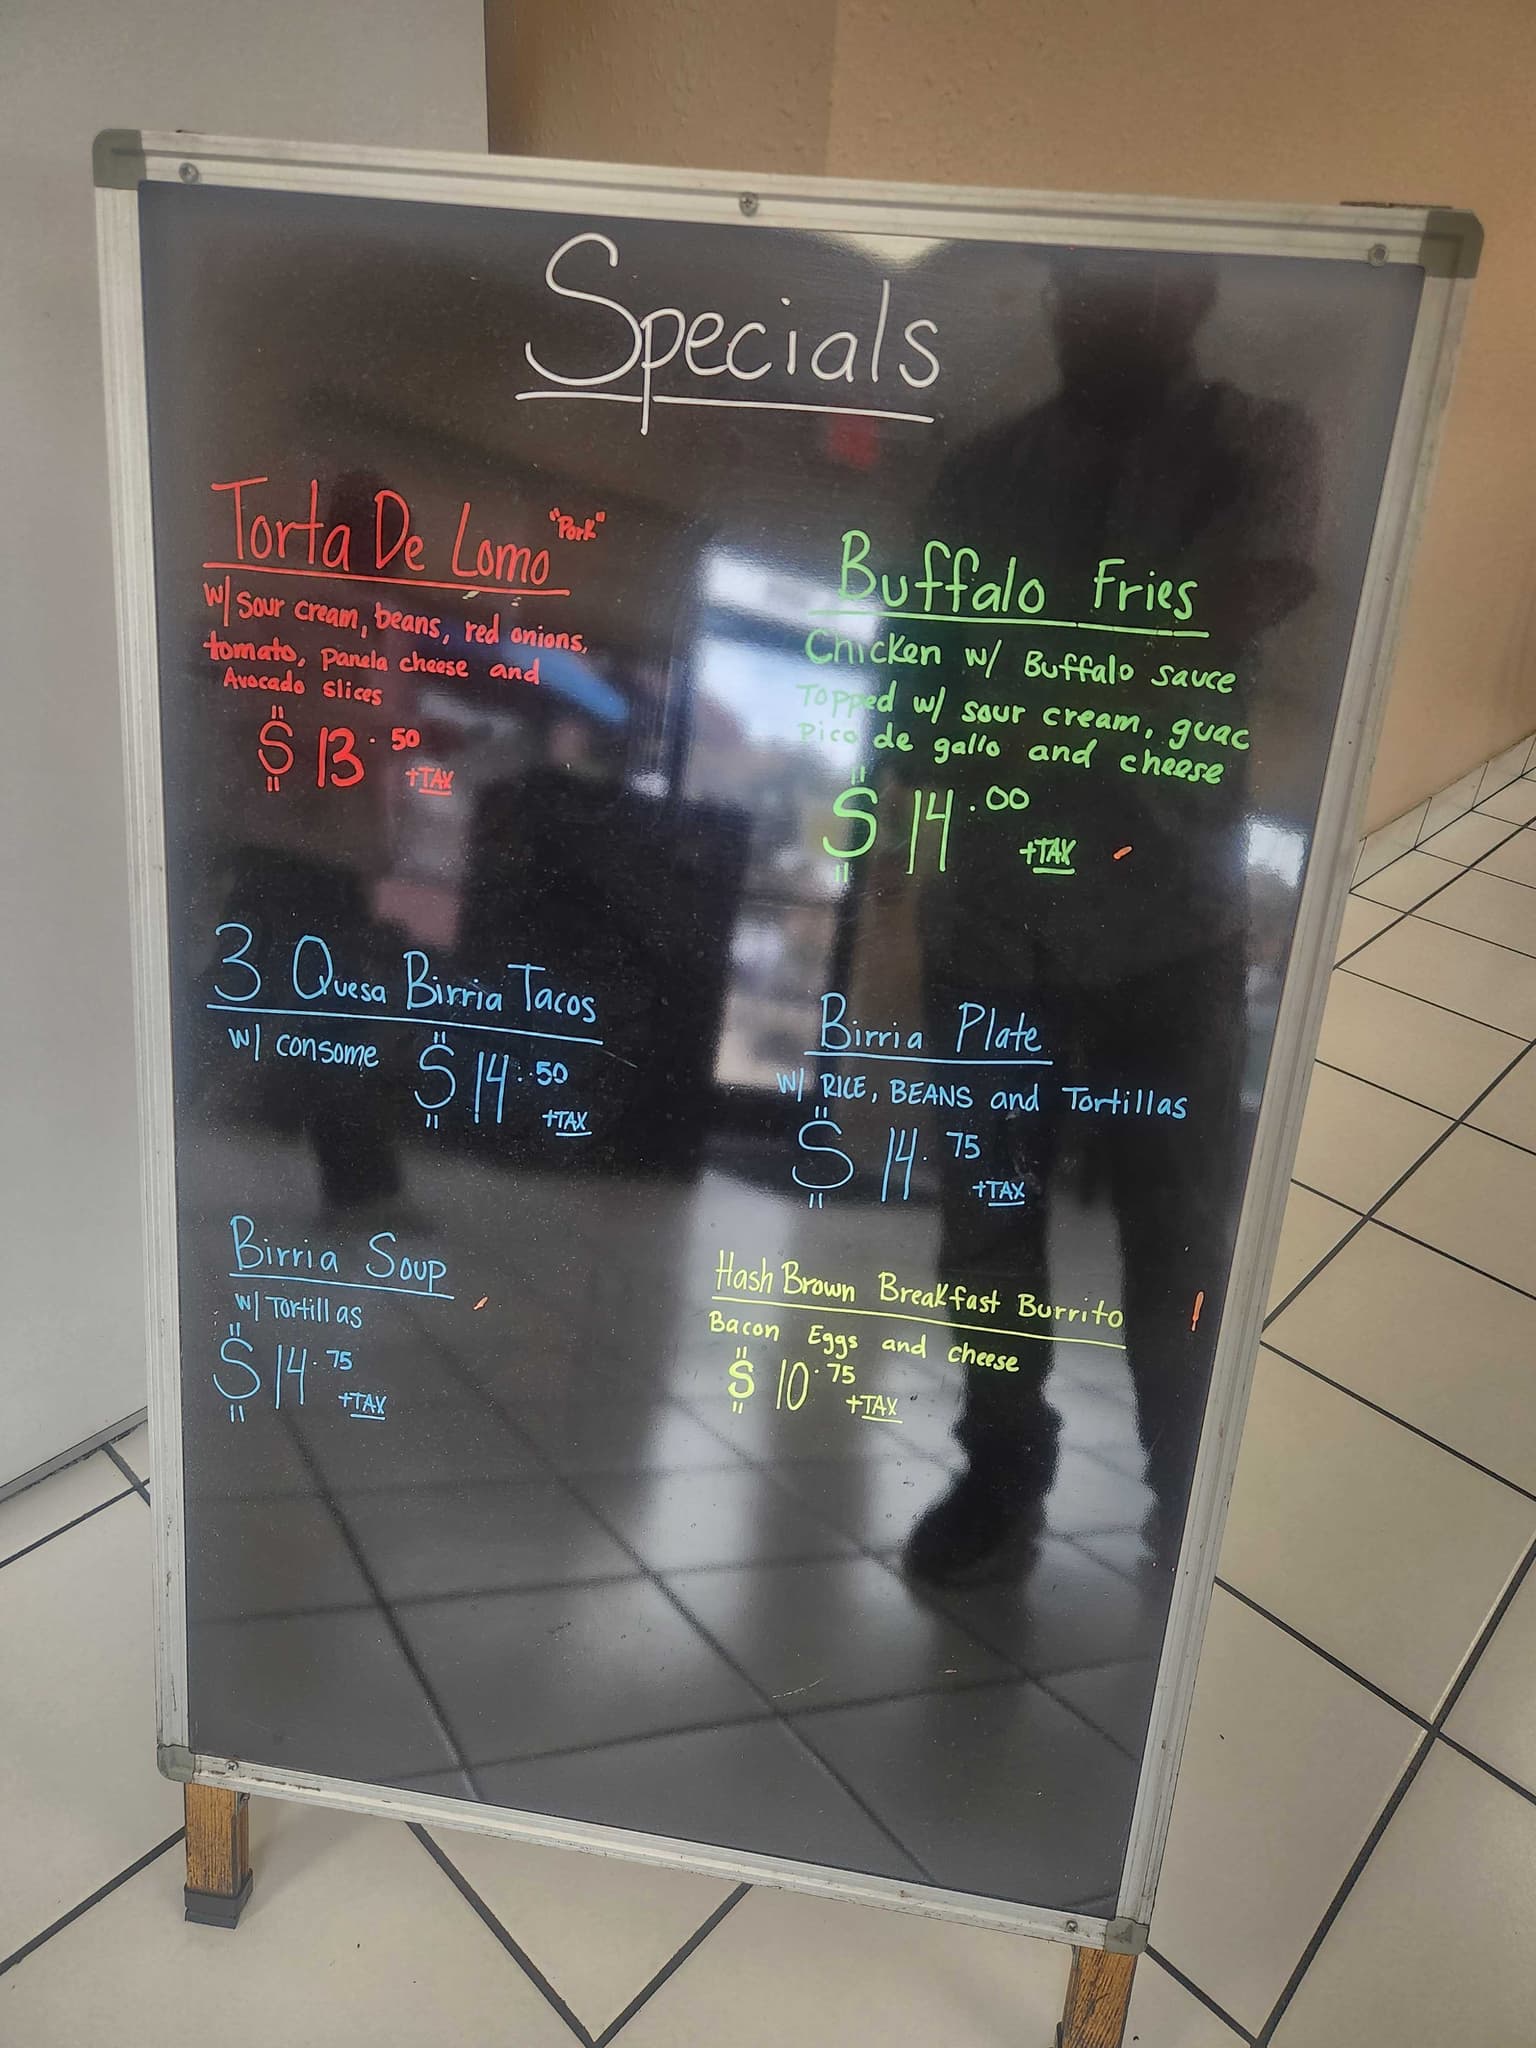 Specials
Torta De Lomo "Pork"
w/ sour cream, beans, red onions,
tomato, Panela cheese and
Avocado slices
$13.50
+TAX
Buffalo Fries
Chicken w/ Buffalo sauce
Topped w/ sour cream, guac
Pico de gallo and cheese
$14.00
+TAX
3 Quesa Birria Tacos
w/ consome $14.50
+TAX
Birria Plate
w/ RICE, BEANS and Tortillas
$14.75
+TAX
Birria Soup
w/ Tortillas
$14.75
+TAX
Hash Brown Breakfast Burrito
Bacon Eggs and cheese
$10.75
+TAX